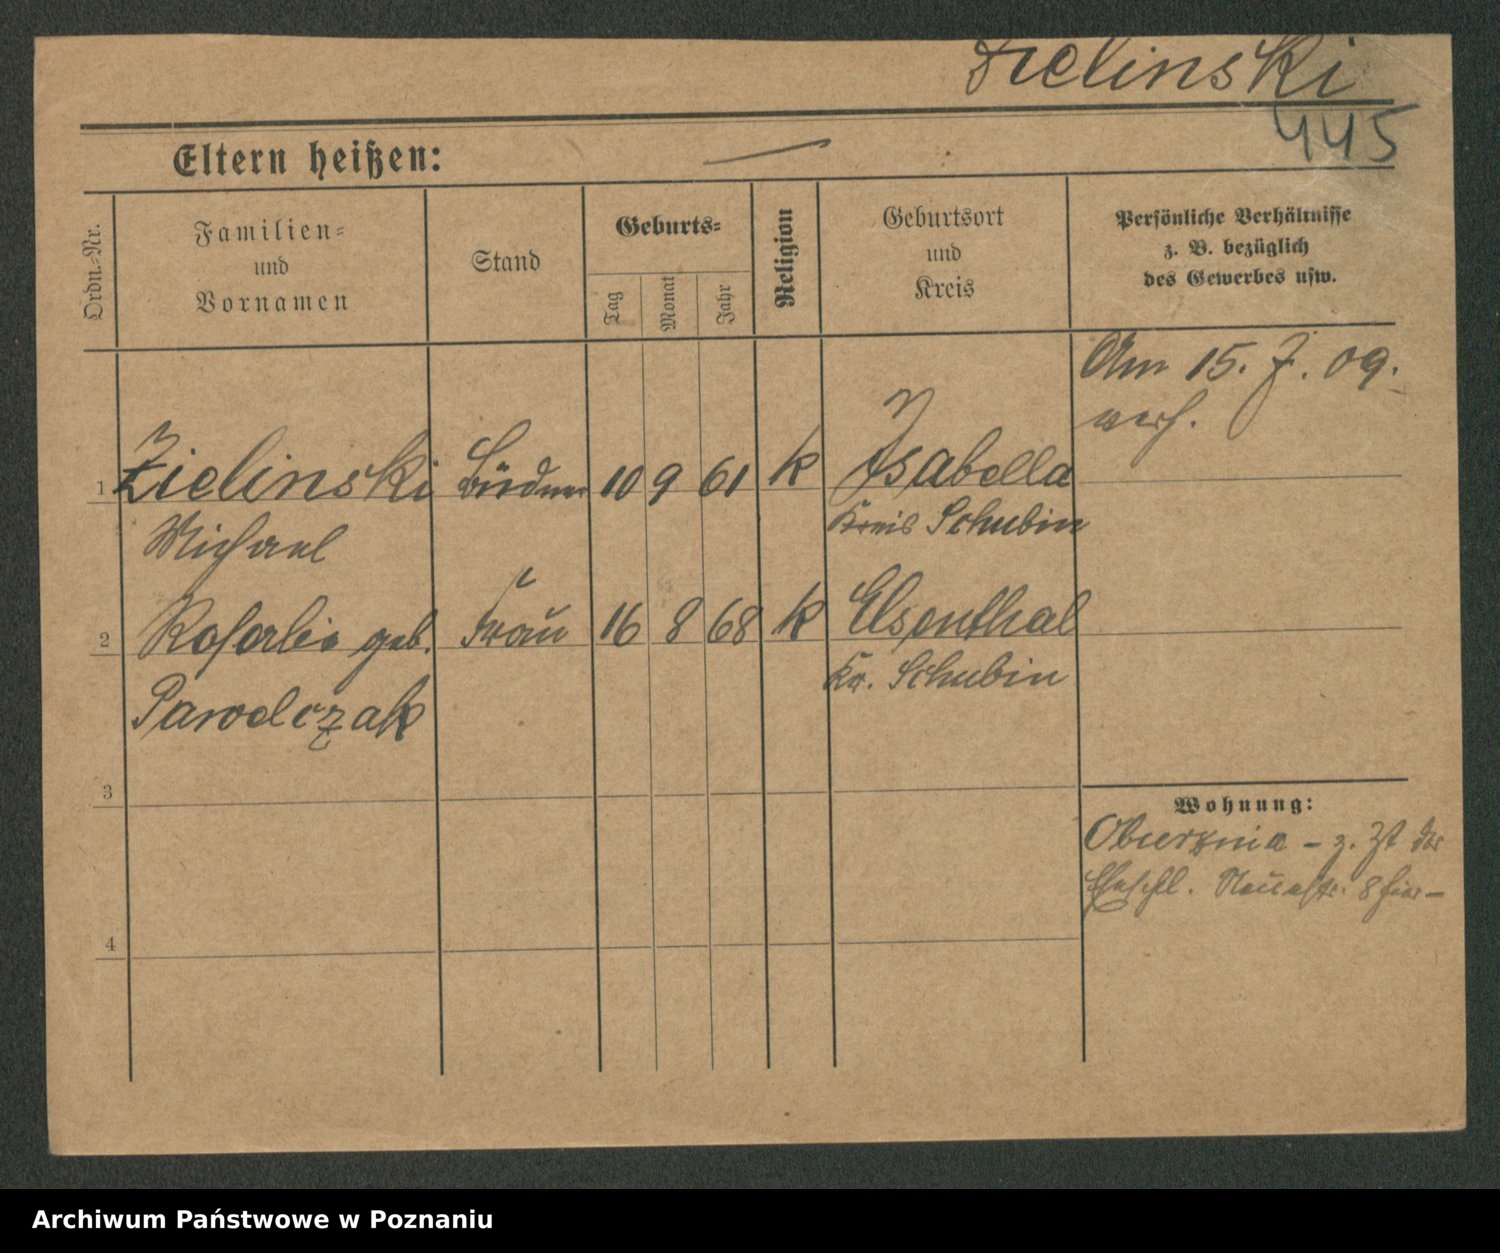 Zielinski
445
Eltern heißen: —
Ordn.-Nr.
Familien-
und
Vornamen
Stand
Geburts-
Tag
Monat
Jahr
Religion
Geburtsort
und
Kreis
Persönliche Verhältnisse
z. B. bezüglich
des Gewerbes usw.
Am 15. 7. 09.
verh.
1 Zielinski Büdner 10 9 61 k Isabella
Michael Kreis Schubin
2 Rosalie geb. Frau 16 8 68 k Elsenthal
Pawelczak Kr. Schubin
3
Wohnung:
Oburznia - z. Zt
8 hier -
4
Archiwum Państwowe w Poznaniu